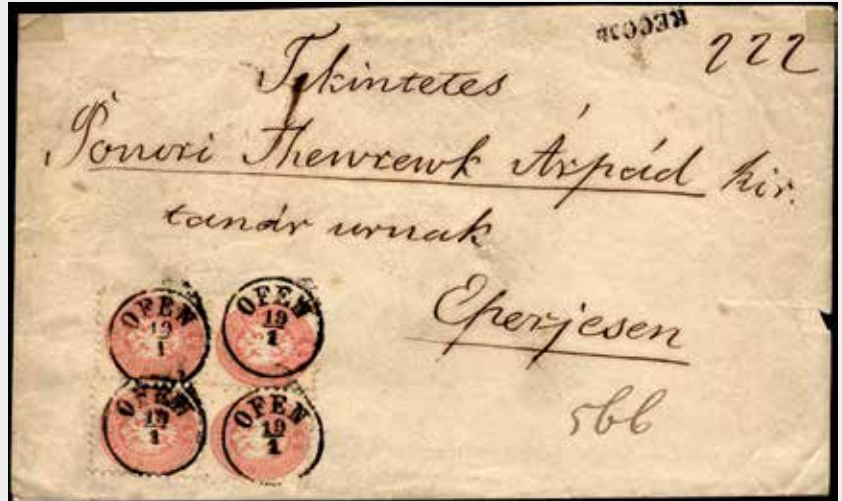 RECOM
222
Tekintetes
Ponori Thewrewk Árpád kir.
tanár urnak
Eperjesen
566
OFEN
19
1
OFEN
19
1
OFEN
19
1
OFEN
19
1